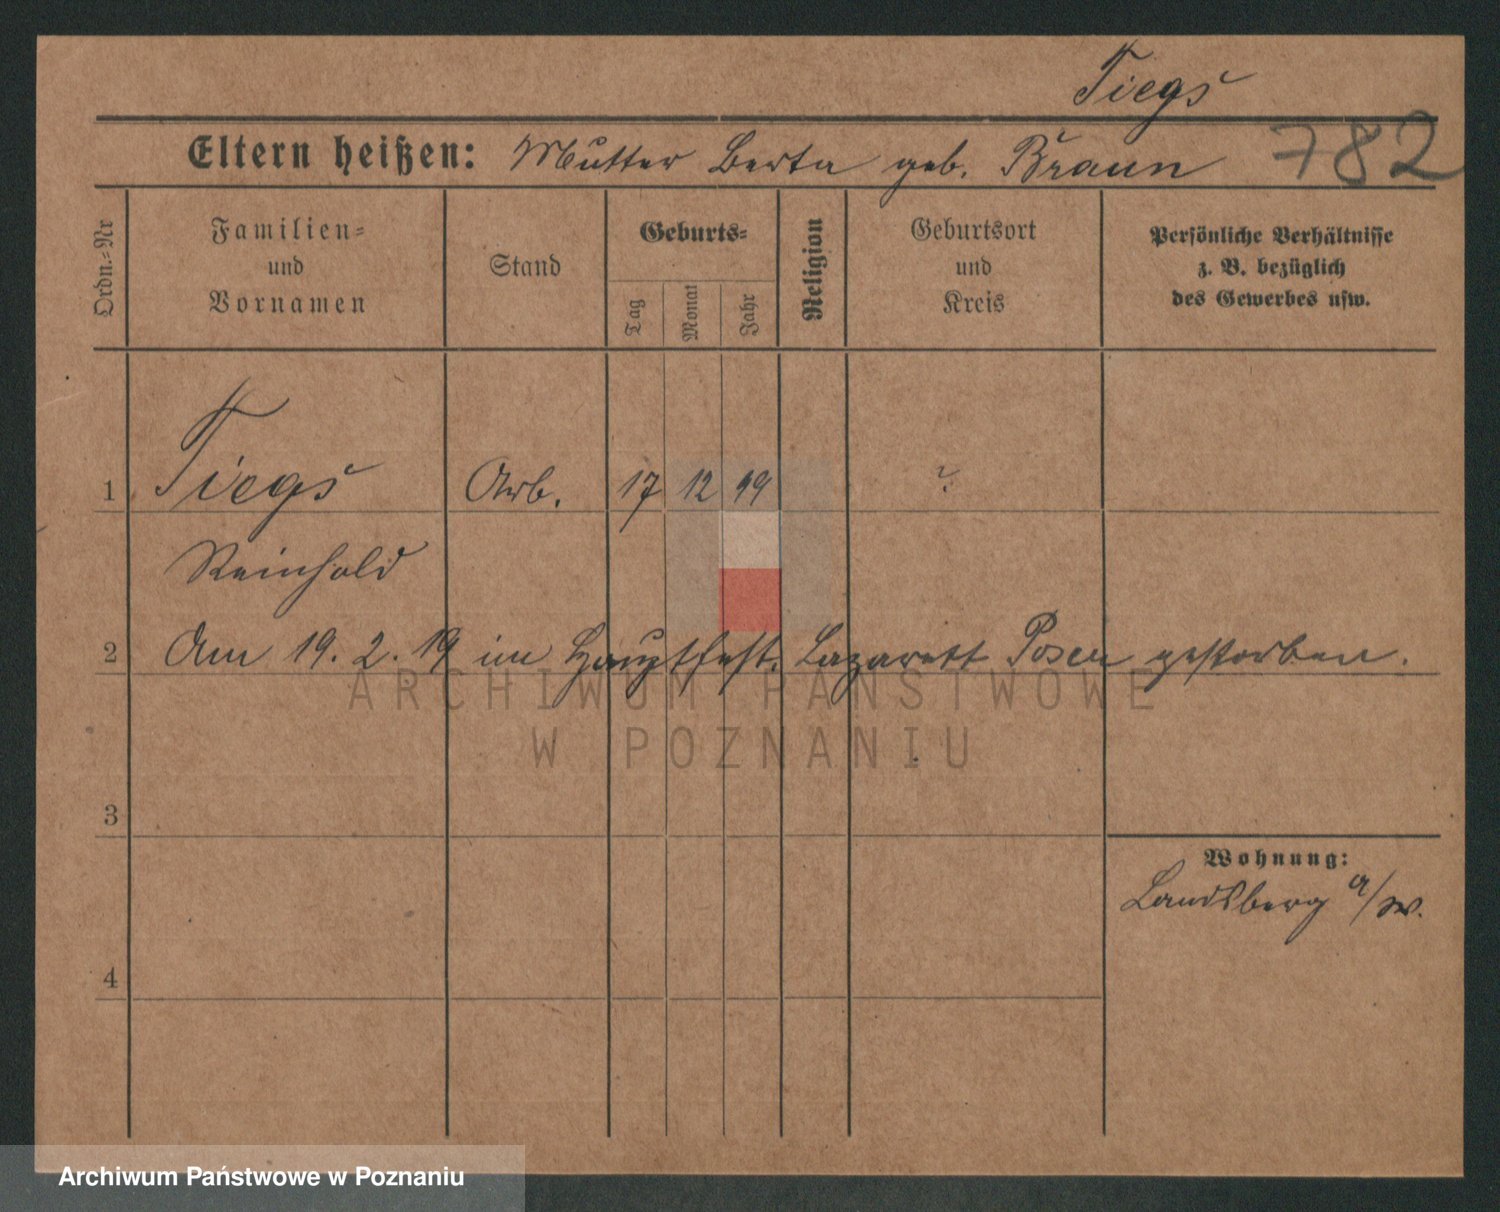 Tiegs
Eltern heißen: Mutter Berta geb. Braun 782
Ordn.-Nr
Familien-
und
Vornamen
Stand
Geburts-
Tag
Monat
Jahr
Religion
Geburtsort
und
Kreis
Persönliche Verhältnisse
z. B. bezüglich
des Gewerbes usw.
1 Tiegs Arb. 17 12 99 ?
Reinhold
2 Am 19. 2. 19 im Hauptfest. Lazarett Posen gestorben.
ARCHIWUM PAŃSTWOWE
W POZNANIU
3
Wohnung:
Landsberg a/W.
4
Archiwum Państwowe w Poznaniu